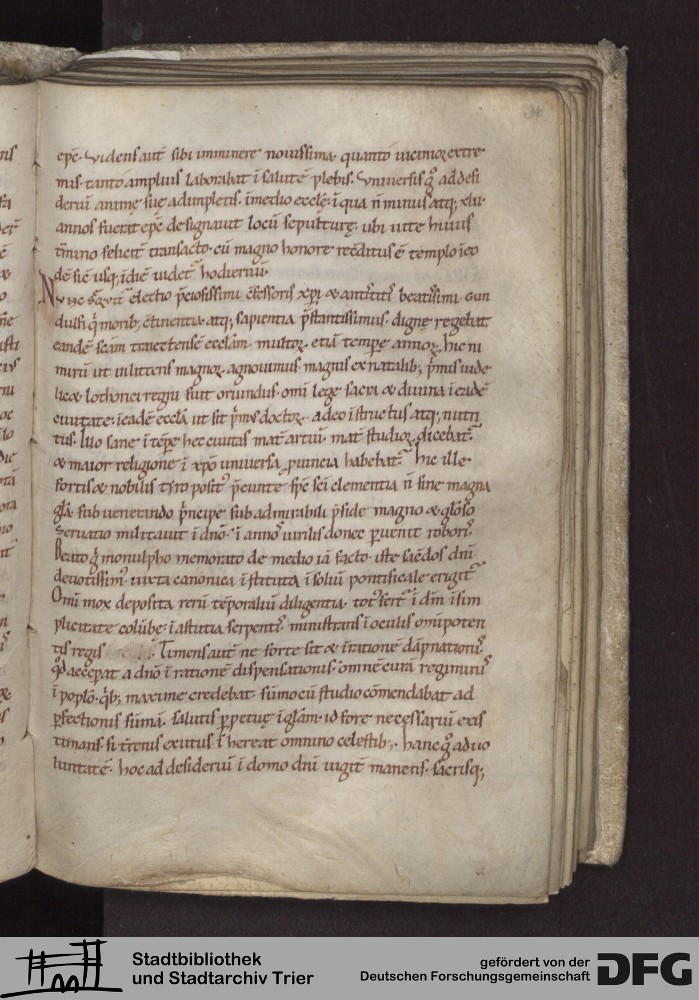 34
epc̄. Videns aut̄ sibi imminere novissima. quanto viciniorꝫ extre
mis. tanto amplius laborabat ī salutē plebis. Universis ḡ ad desi
deriū animę suę adimpletis. ī medio ecclę. ī qua n̄ minus atq; xlii.
annos fuerat epc̄ designavit locū sepulturę. ubi vite huius
t̄mino felicit̄ transacto. cū magno honore reditus ē templo ī eo
dē sic usq; ī diē videt̄ hodiernū.
Nunc seqt̄ electio p̄ciosissimi c̄fessoris xp̄i & antistitis beatissimi Gun
dulfi q̄ morib; c̄tinentia atq; sapientia p̄stantissimus. digne regebat
eandē scām traiectensē ecclām. multorꝫ etiā tempore annorꝫ. hic ni
mirū ut in litteris magnorꝫ agnovimus. magnis ex natalib; p̄mis vide
lic& lothorici regni fuit oriundus. omī lege sacra & divina ī eadē
civitate. ī eadē eccła ut sit p̄mus doctorꝫ. adeo īstructus atq; nutri
tus. Illo sane ī tēpr̄e hec civitas mat̄ artiū. mat̄ studiorꝫ dicebat̄.
& maior religione ī xp̄o universa ꝓvincia habebat̄. Hic ille
fortis & nobilis tyro posit' p̄eunte spe sc̄i clementia n̄ sine magna
gła. sub venerando p̄ncipe. sub admirabili p̄side magno & glōso
Servatio militavit ī dnō. ī annos virilis donec ꝑvenit roboris.
Beato ḡ monulpho memorato de medio iā facto. iste sac̄dos dnī
devotissim' iuxta canonica īstituta ī soliū pontificale erigit̄
Omi mox deposita rerū tēporaliū diligentia. tot' fert̄ ī dm̄ ī sim
plicitate colūbe. ī astutia serpentis. ministrans ī oculis omīpoten
tis regis Timens aut̄ ne forte sit & ī ratione dāpnationis
qd̄ acceperat a dnō ī ratione dispensationis. omnē curā regiminis
ī poplō. qb; maxime credebat. sūmo cū studio cōmendabat ad
ꝑfectionis sūmā. salutis ꝑpetuę ī glām. id fore necessariū exis
timans. si t̄renis exutus. ī hereat omnino celestib;. hanc ḡ ad vo
luntatē. hoc ad desideriū ī domo dnī vigil manens. sacrisq;
Stadtbibliothek
und Stadtarchiv Trier
gefördert von der
Deutschen Forschungsgemeinschaft
DFG